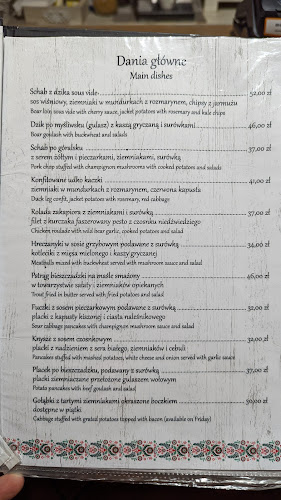 Dania główne
Main dishes
Schab z dzika sous vide 52,00 zł
sos wiśniowy, ziemniaki w mundurkach z rozmarynem, chipsy z jarmużu
Boar loin sous vide with cherry sauce, jacket potatoes with rosemary and kale chips
Dzik po myśliwsku (gulasz) z kaszą gryczaną i surówkami 46,00 zł
Boar goulash with buckwheat and salads
Schab po góralsku 37,00 zł
z serem żółtym i pieczarkami, ziemniakami, surówką
Pork chop stuffed with champignon mushrooms with cooked potatoes and salads
Konfitowane udko kaczki 41,00 zł
ziemniaki w mundurkach z rozmarynem, czerwona kapusta
Duck leg confit, jacket potatoes with rosemary, red cabbage
Rolada zakapiora z ziemniakami i surówką 37,00 zł
filet z kurczaka faszerowany pesto z czosnku niedźwiedziego
Chicken roulade with wild bear garlic, cooked potatoes and salad
Hreczanyki w sosie grzybowym podawane z surówką 34,00 zł
kotleciki z mięsa mielonego i kaszy gryczanej
Meatballs mixed with buckwheat served with mushroom sauce and salad
Pstrąg bieszczadzki na maśle smażony 46,00 zł
w towarzystwie sałaty i ziemniaków opiekanych
Trout fried in butter served with fried potatoes and salad
Fuczki z sosem pieczarkowym podawane z surówką 32,00 zł
placki z kapusty kiszonej i ciasta naleśnikowego
Sour cabbage pancakes with champignon mushroom sauce and salad
Knysze z sosem czosnkowym 32,00 zł
placki z nadzieniem z sera białego, ziemniaków i cebuli
Pancakes stuffed with mashed potatoes, white cheese and onion served with garlic sauce
Placek po bieszczadzku, podawany z surówką 37,00 zł
placki ziemniaczane przełożone gulaszem wołowym
Potato pancakes with beef goulash and salad
Gołąbki z tartymi ziemniakami okraszone boczkiem 30,00 zł
dostępne w piątki
Cabbage stuffed with grated potatoes topped with bacon (available on Friday)